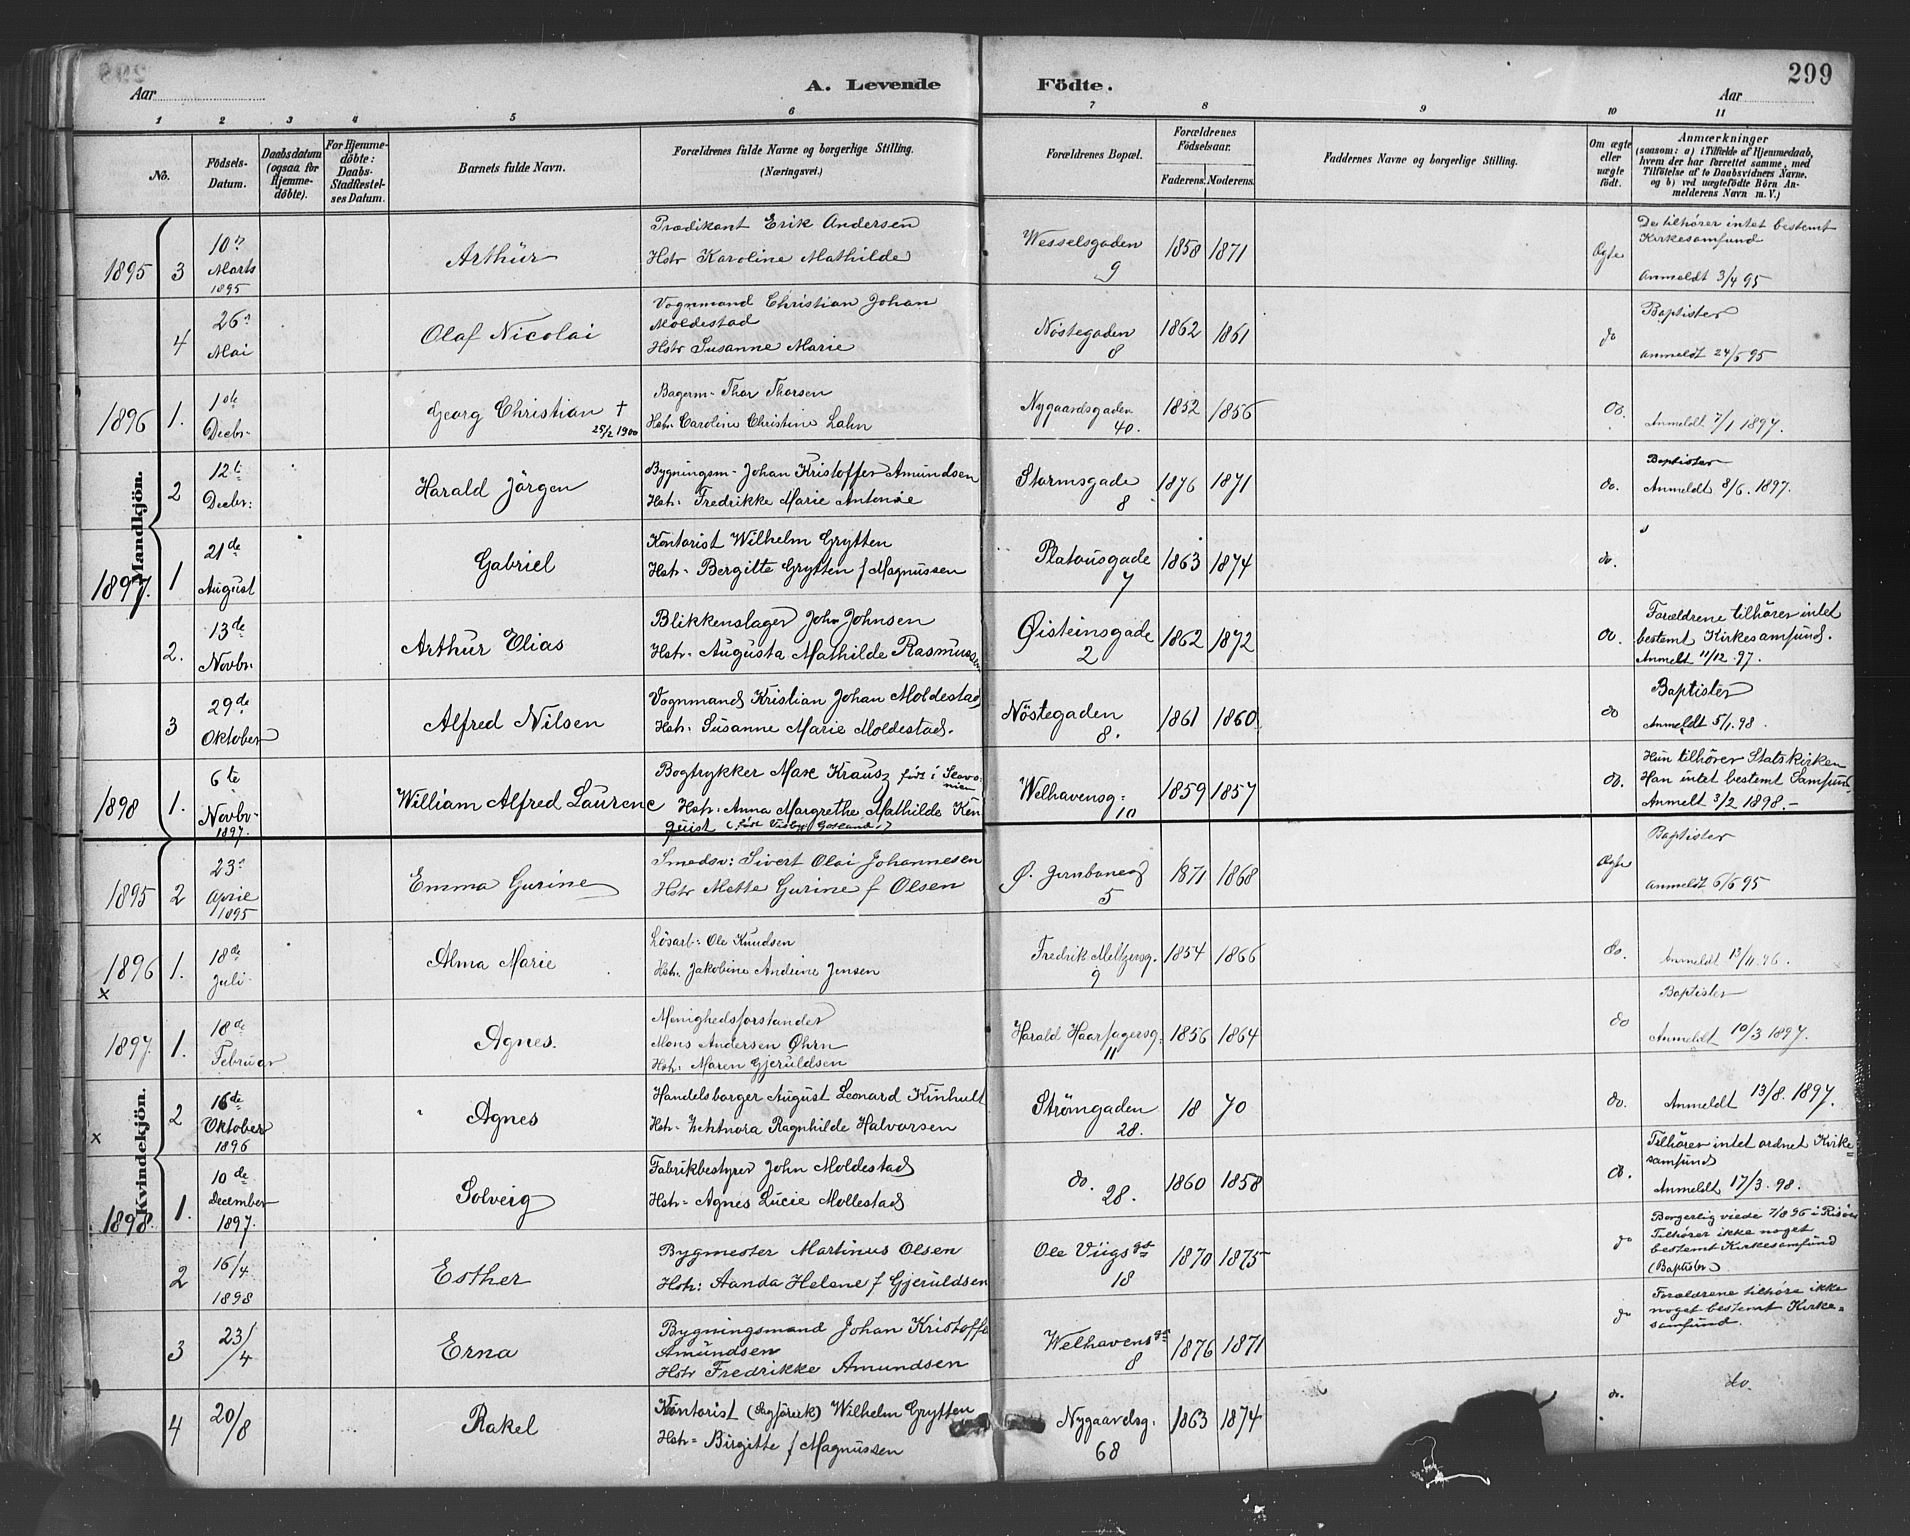 299
Aar
A. Levende Födte.
Aar
1 2 3 4 5 6 7 8 9 10 11
No.
Födsels-Datum.
Daabsdatum (ogsaa for Hjemme-döbte).
For Hjemme-döbte: Daabs-Stadfæstel-ses Datum.
Barnets fulde Navn.
Forældrenes fulde Navne og borgerlige Stilling. (Næringsvei.)
Forældrenes Bopæl.
Forældrenes Födselsaar.
Faderens. Moderens.
Faddernes Navne og borgerlige Stilling.
Om ægte eller uægte födt.
Anmærkninger
(saasom: a) i Tilfælde af Hjemmedaab,
hvem der har forrettet samme, med
Tilföielse af to Daabsvidners Navne.
og b) ved uægtefödte Börn An-
melderens Navn m. V.)
Mandkjön.
1895 3 10de Marts 1895 Arthur
Prædikant Erik Andersen
Hstr Karoline Mathilde
Wesselsgaden 9 1858 1871 Ægte
De tilhører intet bestemt
Kirkesamfund
Anmeldt 3/4 95
4 26 Mai Olaf Nicolai
Vognmand Christian Johan
Moldestad
Hstr Susanne Marie
Nöstegaden 8 1862 1861 do
Baptister
Anmeldt 24/6 95
1896 1. 1ste Decbr. Georg Christian † 25/2 1900
Bagerm. Thor Thorsen
Hstr. Caroline Christine Lahn
Nygaardsgaden 40. 1852 1856 do.
Anmeldt 7/1 1897.
2 12te Decbr. Harald Jörgen
Bygningsm. Johan Kristoffer Amundsen
Hstr. Fredrikke Marie Antonöe
Stormsgade 8 1876 1871 do.
Baptister
Anmeldt 8/6. 1897.
1897. 1 21de August Gabriel
Kontorist Wilhelm Grytten
Hstr. Bergitte Grytten f Magnussen
Platousgade 7 1863 1874 do.
2. 13de Novbr. Arthur Elias
Blikkenslager John Johnsen
Hstr. Augusta Mathilde Rasmussen
Øisteinsgade 2 1862 1872 do.
Forældrene tilhører intet
bestemt Kirkesamfund.
Anmelt 11/12. 97.
3 29de Oktober Alfred Nilsen
Vognmand Kristian Johan Moldestad
Hstr. Susanne Marie Moldestad.
Nöstegaden 8. 1861 1860 do
Baptister
Anmeldt 5/1. 98.
1898 1. 6te Novbr. 1897. William Alfred Laurenc
Bogtrykker Max Krausz født i Slavo-
nien
Hstr. Anna Margrethe Mathilde Ken
quist (født Visby Gotland)
Welhavensg. 10 1859 1857 do.
Hun tilhører Statskirken
Han intet bestemt Samfund
Anmelt 3/2 1898.-
Kvindekjön.
1895 2 23 April 1895 Emma Gurine
Smedsv: Sivert Olai Johannesen
Hstr Mette Gurine f Olsen
Ø. Jernbaneg 5 1871 1868 Ægte
Baptister
Anmeldt 6/6 95
1896 x 1. 18de Juli. Alma Marie
Løsarb. Ole Knudsen
Hstr. Jakobine Andrine Jensen
Fredrik Meltzersg. 9 1854 1866 do.
Anmeldt 13/11. 96.
1897. 1. 18de Februar Agnes.
Menighedsforstander
Mons Andersen Øhrn
Hstr. Maren Gjeruldsen
Harald Haarfagersg. 11 1856 1864 do
Baptister
Anmeldt 10/3 1897.
x 2 16de Oktober 1896 Agnes
Handelsborger August Leonard Kinhult
Hstr. Ragnhilde Halvorsen
Strömgaden 28. 18 70 do.
Anmeldt 13/8. 1897.
1898. 1. 10de December 1897. Solveig
Fabrikbestyrer John Moldestad
Hstr. Agnes Lucie Mollestad
do. 28. 1860 1858 do.
Tilhörer intet ordnet Kirke=
samfund
Anmeldt 17/3. 98.
2 16/4 1898 Esther
Bygmester Martinus Olsen
Hstr: Aanda Helene f Gjeruldsen
Ole Viigs gt 18 1870 1875 do
Borgerlig viede 7/8 96 i Risöer
Tilhører ikke noget
bestemt Kirkesamfund
(Baptister)
3 23/4 Erna
Bygningsmand Johan Kristoffe
Amundsen
Hstr Fredrikke Amundsen
Welhavensgt 8 1876 1871 do
Forældrene tilhöre ikke
noget bestemt Kirke=
samfund.
4 20/8 Rakel
Kontorist (Sagförerk) Wilhelm Grytten
Hstr= Birgitte f Magnussen
Nygaardsg. 68 1863 1874 do.
do.